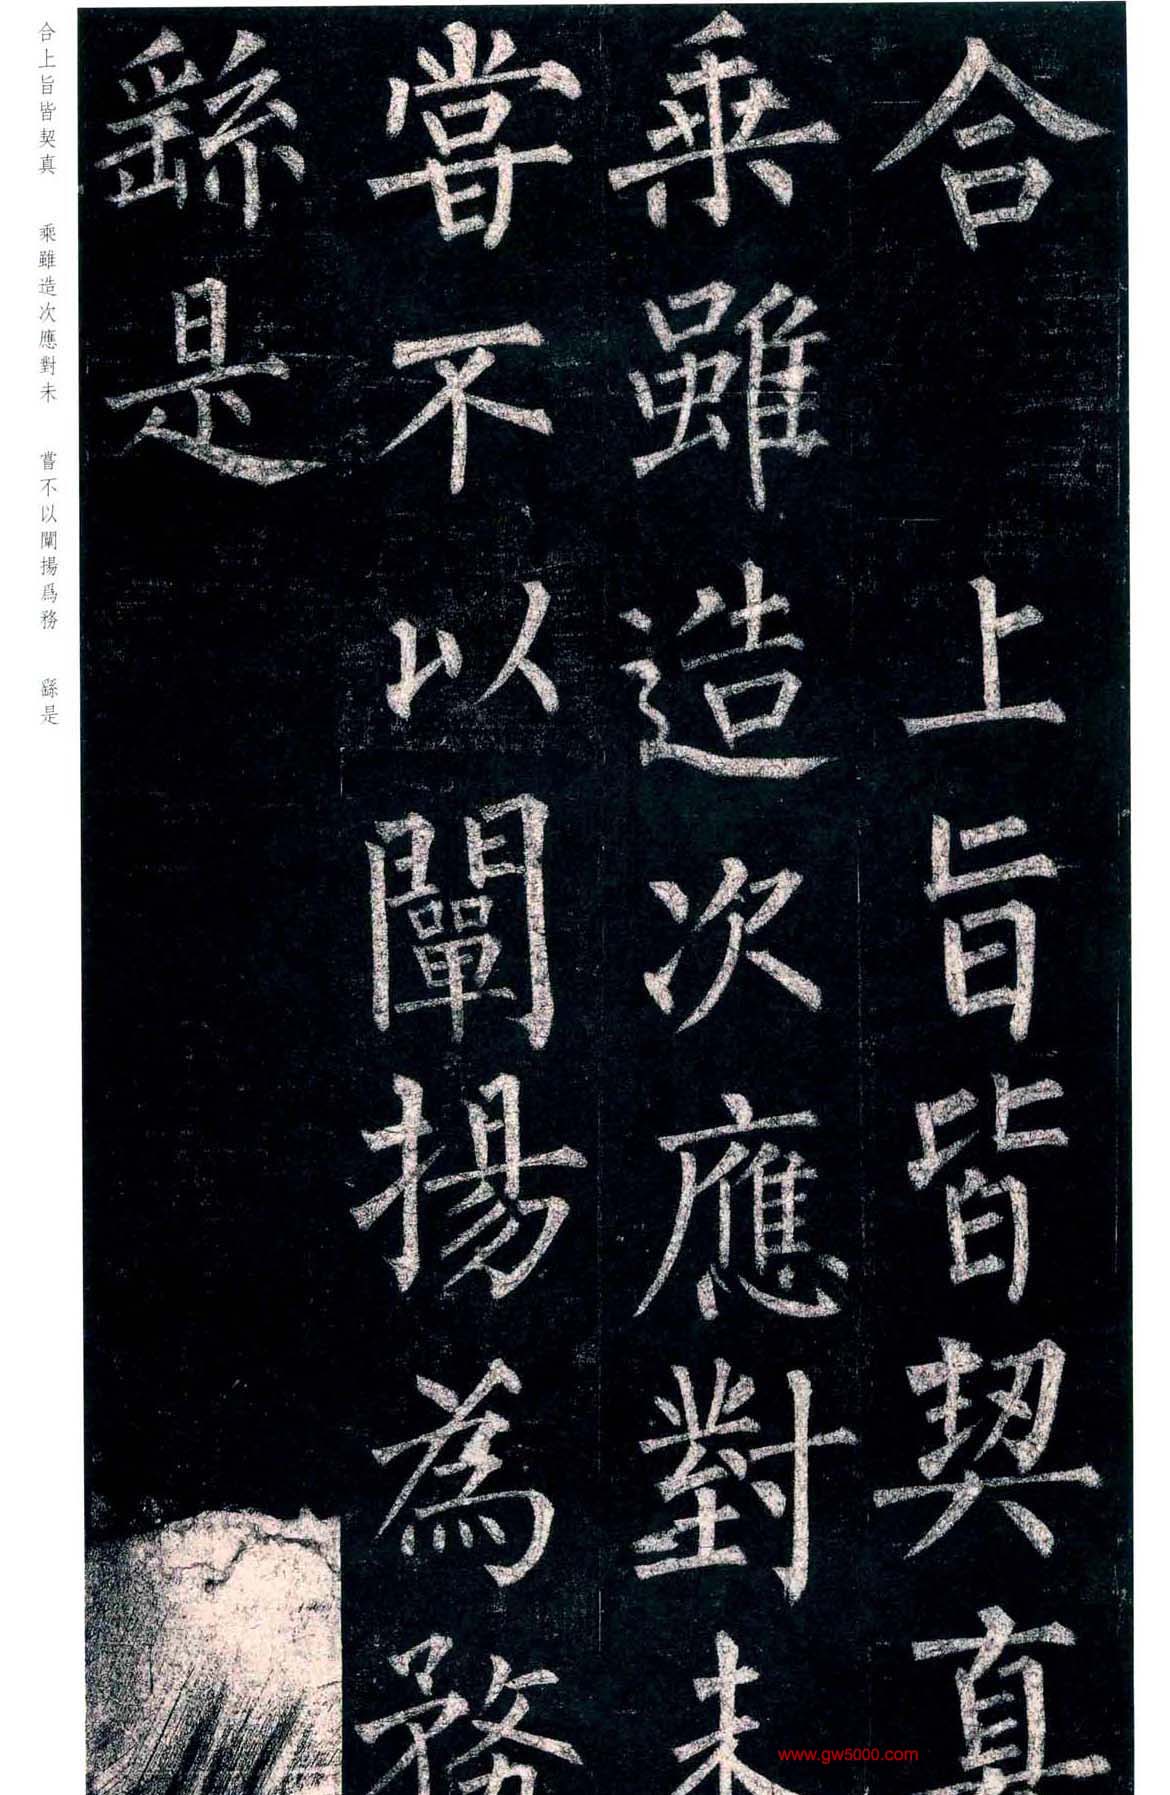 合上旨皆契真
乘雖造次應對未
嘗不以闡揚為務
繇是
合上旨皆契真 乘雖造次應對未 嘗不以闡揚爲務 繇是
www.gw5000.com